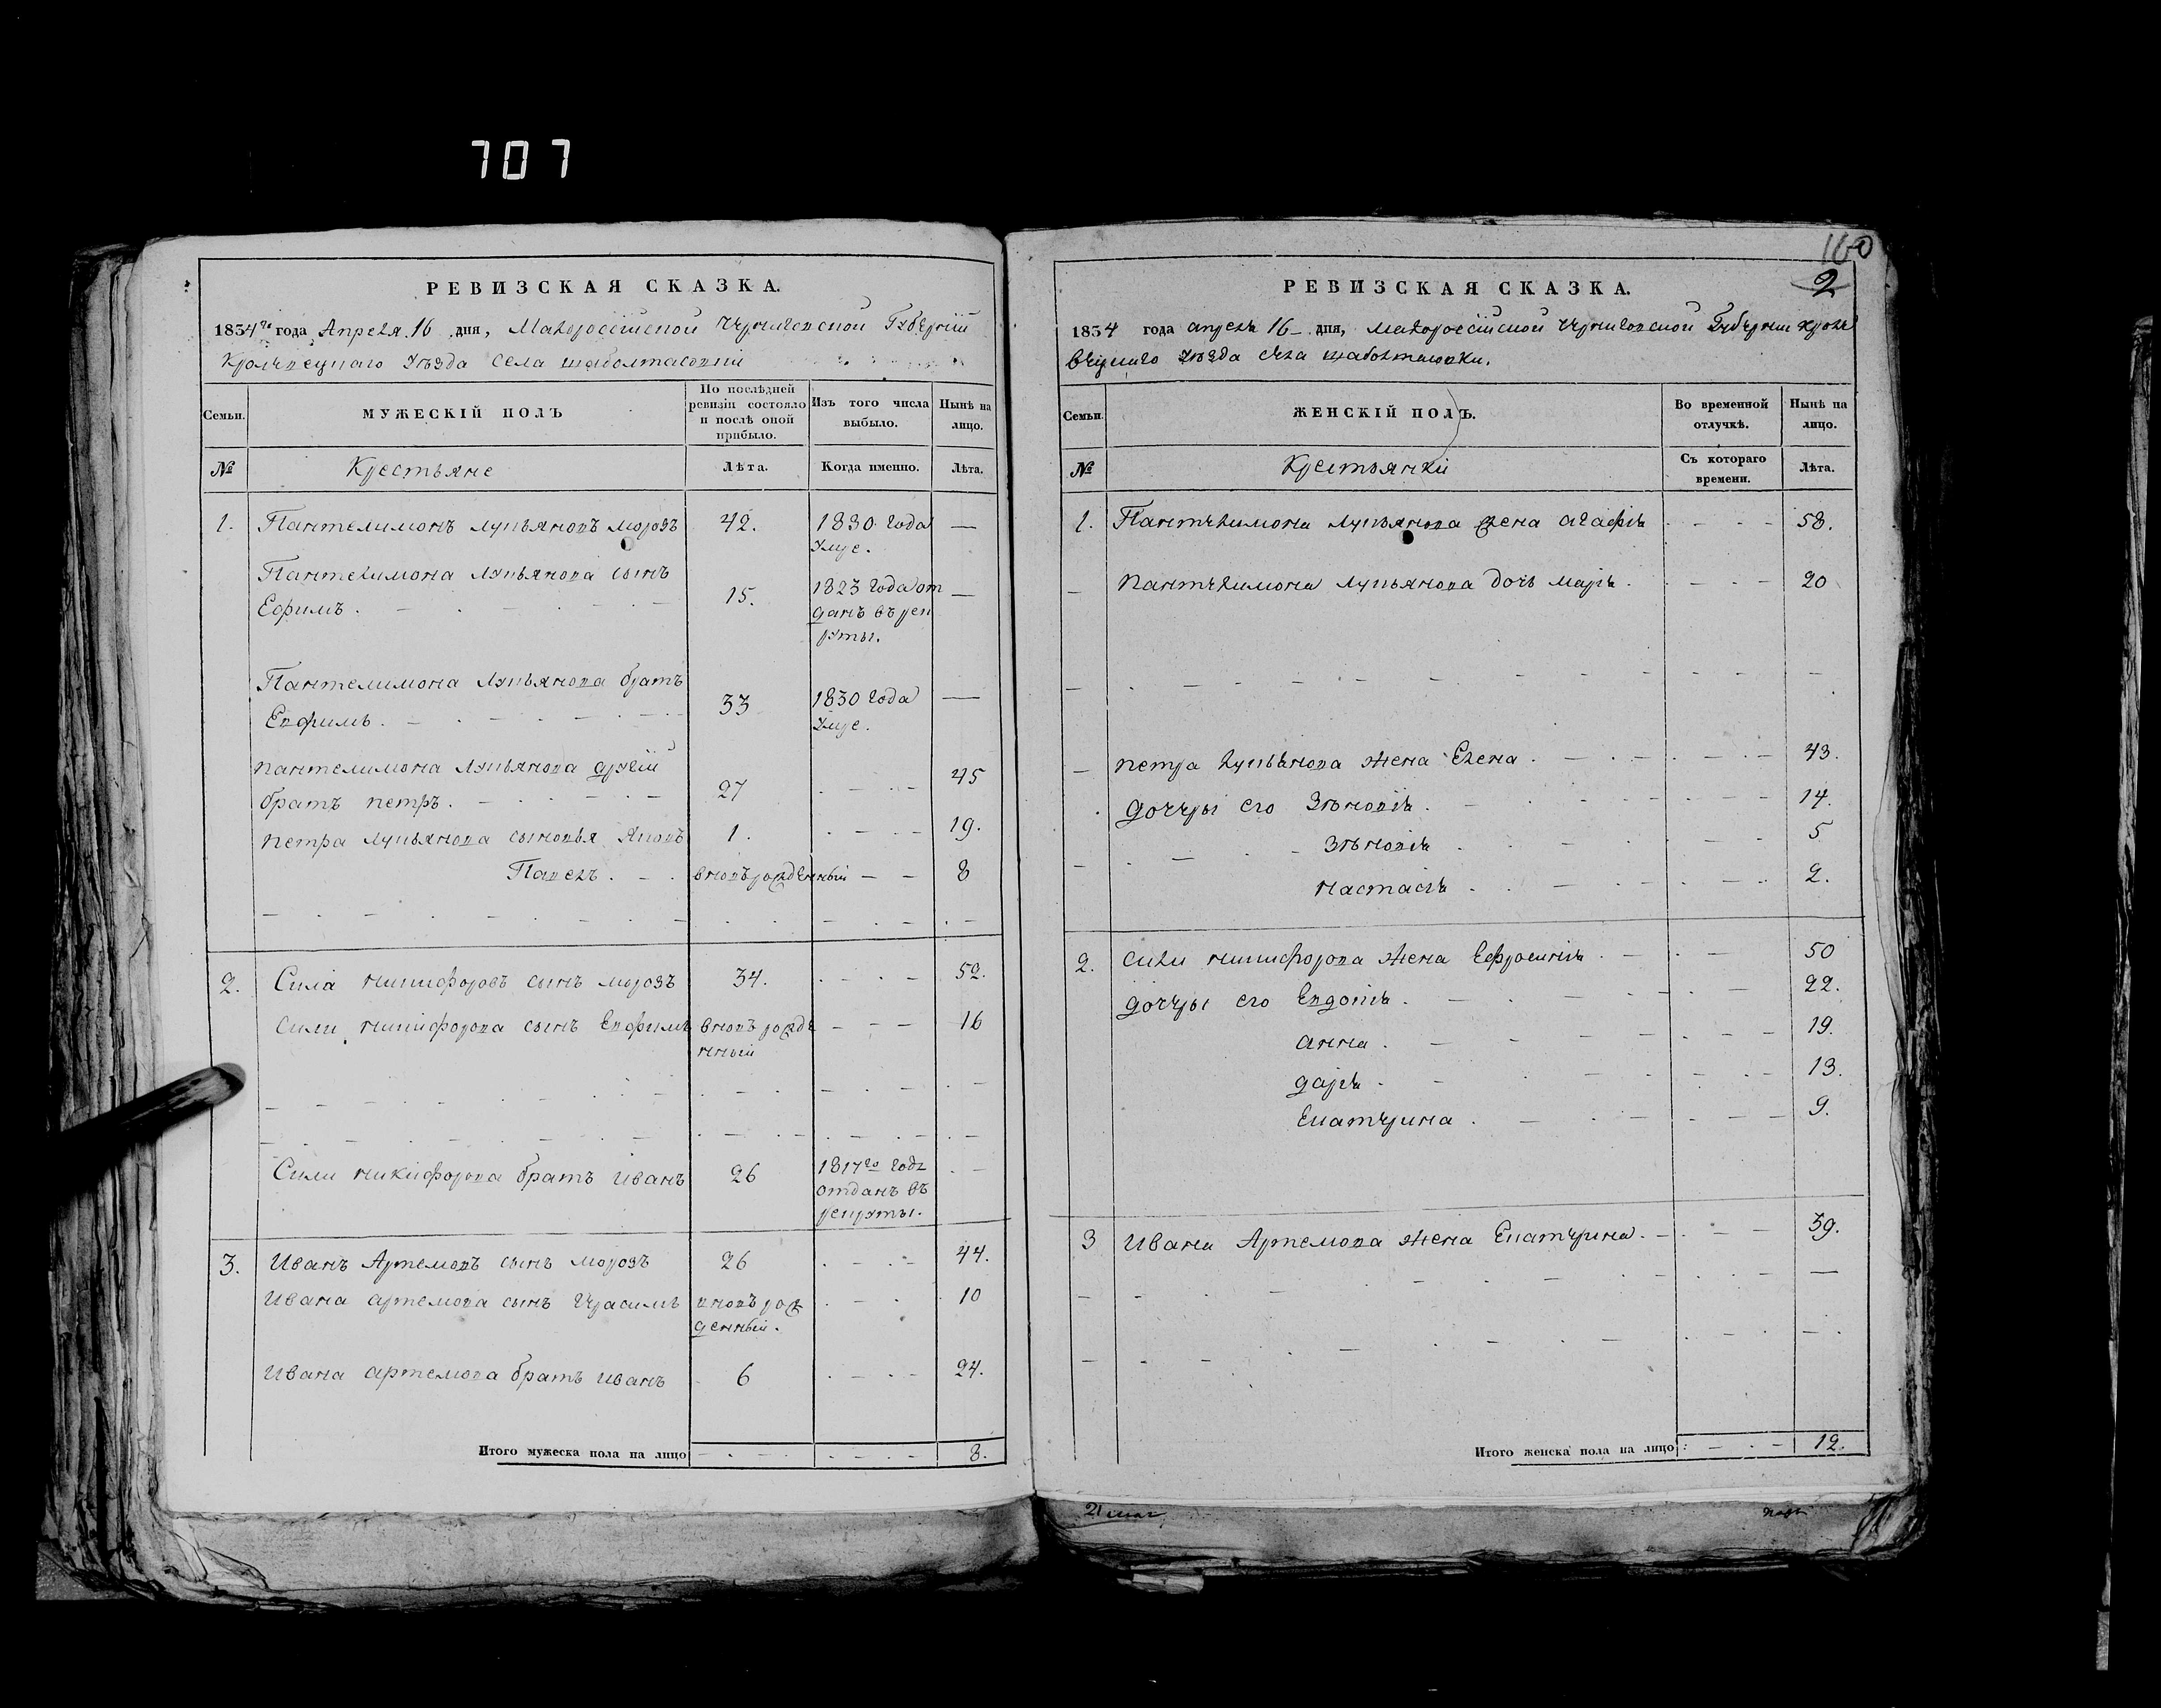 707
РЕВИЗСКАЯ СКАЗКА.
1834го года Апреля 16 дня, Малоросѣйской Черниговской Губернии
Кролевецкаго уѣзда села шаболтасовки
Семьи.
МУЖЕСКІЙ ПОЛЪ
По послѣдней ревизіи состояло и послѣ оной прибыло.
Изъ того числа выбыло.
Нынѣ на лицо.
№
Крестьяне
Лѣта.
Когда именно.
Лѣта.
1. Пантелимонъ лукьяновъ морозъ 42. 1830 года —
умре.
Пантелимона лукьянова сынъ
Ефимъ. 15. 1823 года от —
данъ въ рек
руты.
Пантелимона лукьянова братъ
Евфимъ. 33 1830 года —
умре.
пантелимона лукьянова другій
братъ петръ. 27 45
петра лукьянова сыновья Яковъ 1. 19.
Павелъ. вновърожденный 8
2. Сила никифоровъ сынъ морозъ 34. 52.
Сили никифорова сынъ Евфимъ вновъ рожде 16
нный
Сили никифорова братъ иванъ 26 1817го года
отданъ въ
рекруты.
3. Иванъ Артемовъ сынъ морозъ 26 44.
Ивана артемова сынъ Герасимъ вновъ рож 10
денный.
ивана артемова братъ иванъ 6 24.
Итого мужеска пола на лицо 8.
160
2
РЕВИЗСКАЯ СКАЗКА.
1834 года апреля 16 дня, малоросѣйской Черниговской Губернии кроле
вецкаго уѣзда села шаболтасовки.
Семьи.
ЖЕНСКІЙ ПОЛЪ.
Во временной отлучкѣ.
Нынѣ на лицо.
№
Крестьянки
Съ котораго времени.
Лѣта.
1. Пантелимона лукьянова жена агафія 58.
Пантелимона лукьянова дочь марья 20
петра лукьянова жена Елена 43.
дочеры его Зѣновія 14.
Зѣновія 5
настасія 2.
2. сили никифорова жена Ефросинія 50
дочеры его Евдокія 22.
анна 19.
дарія 13.
Екатерина 9.
3 Ивана Артемова жена Екатерина 39.
Итого женска пола на лицо 12.